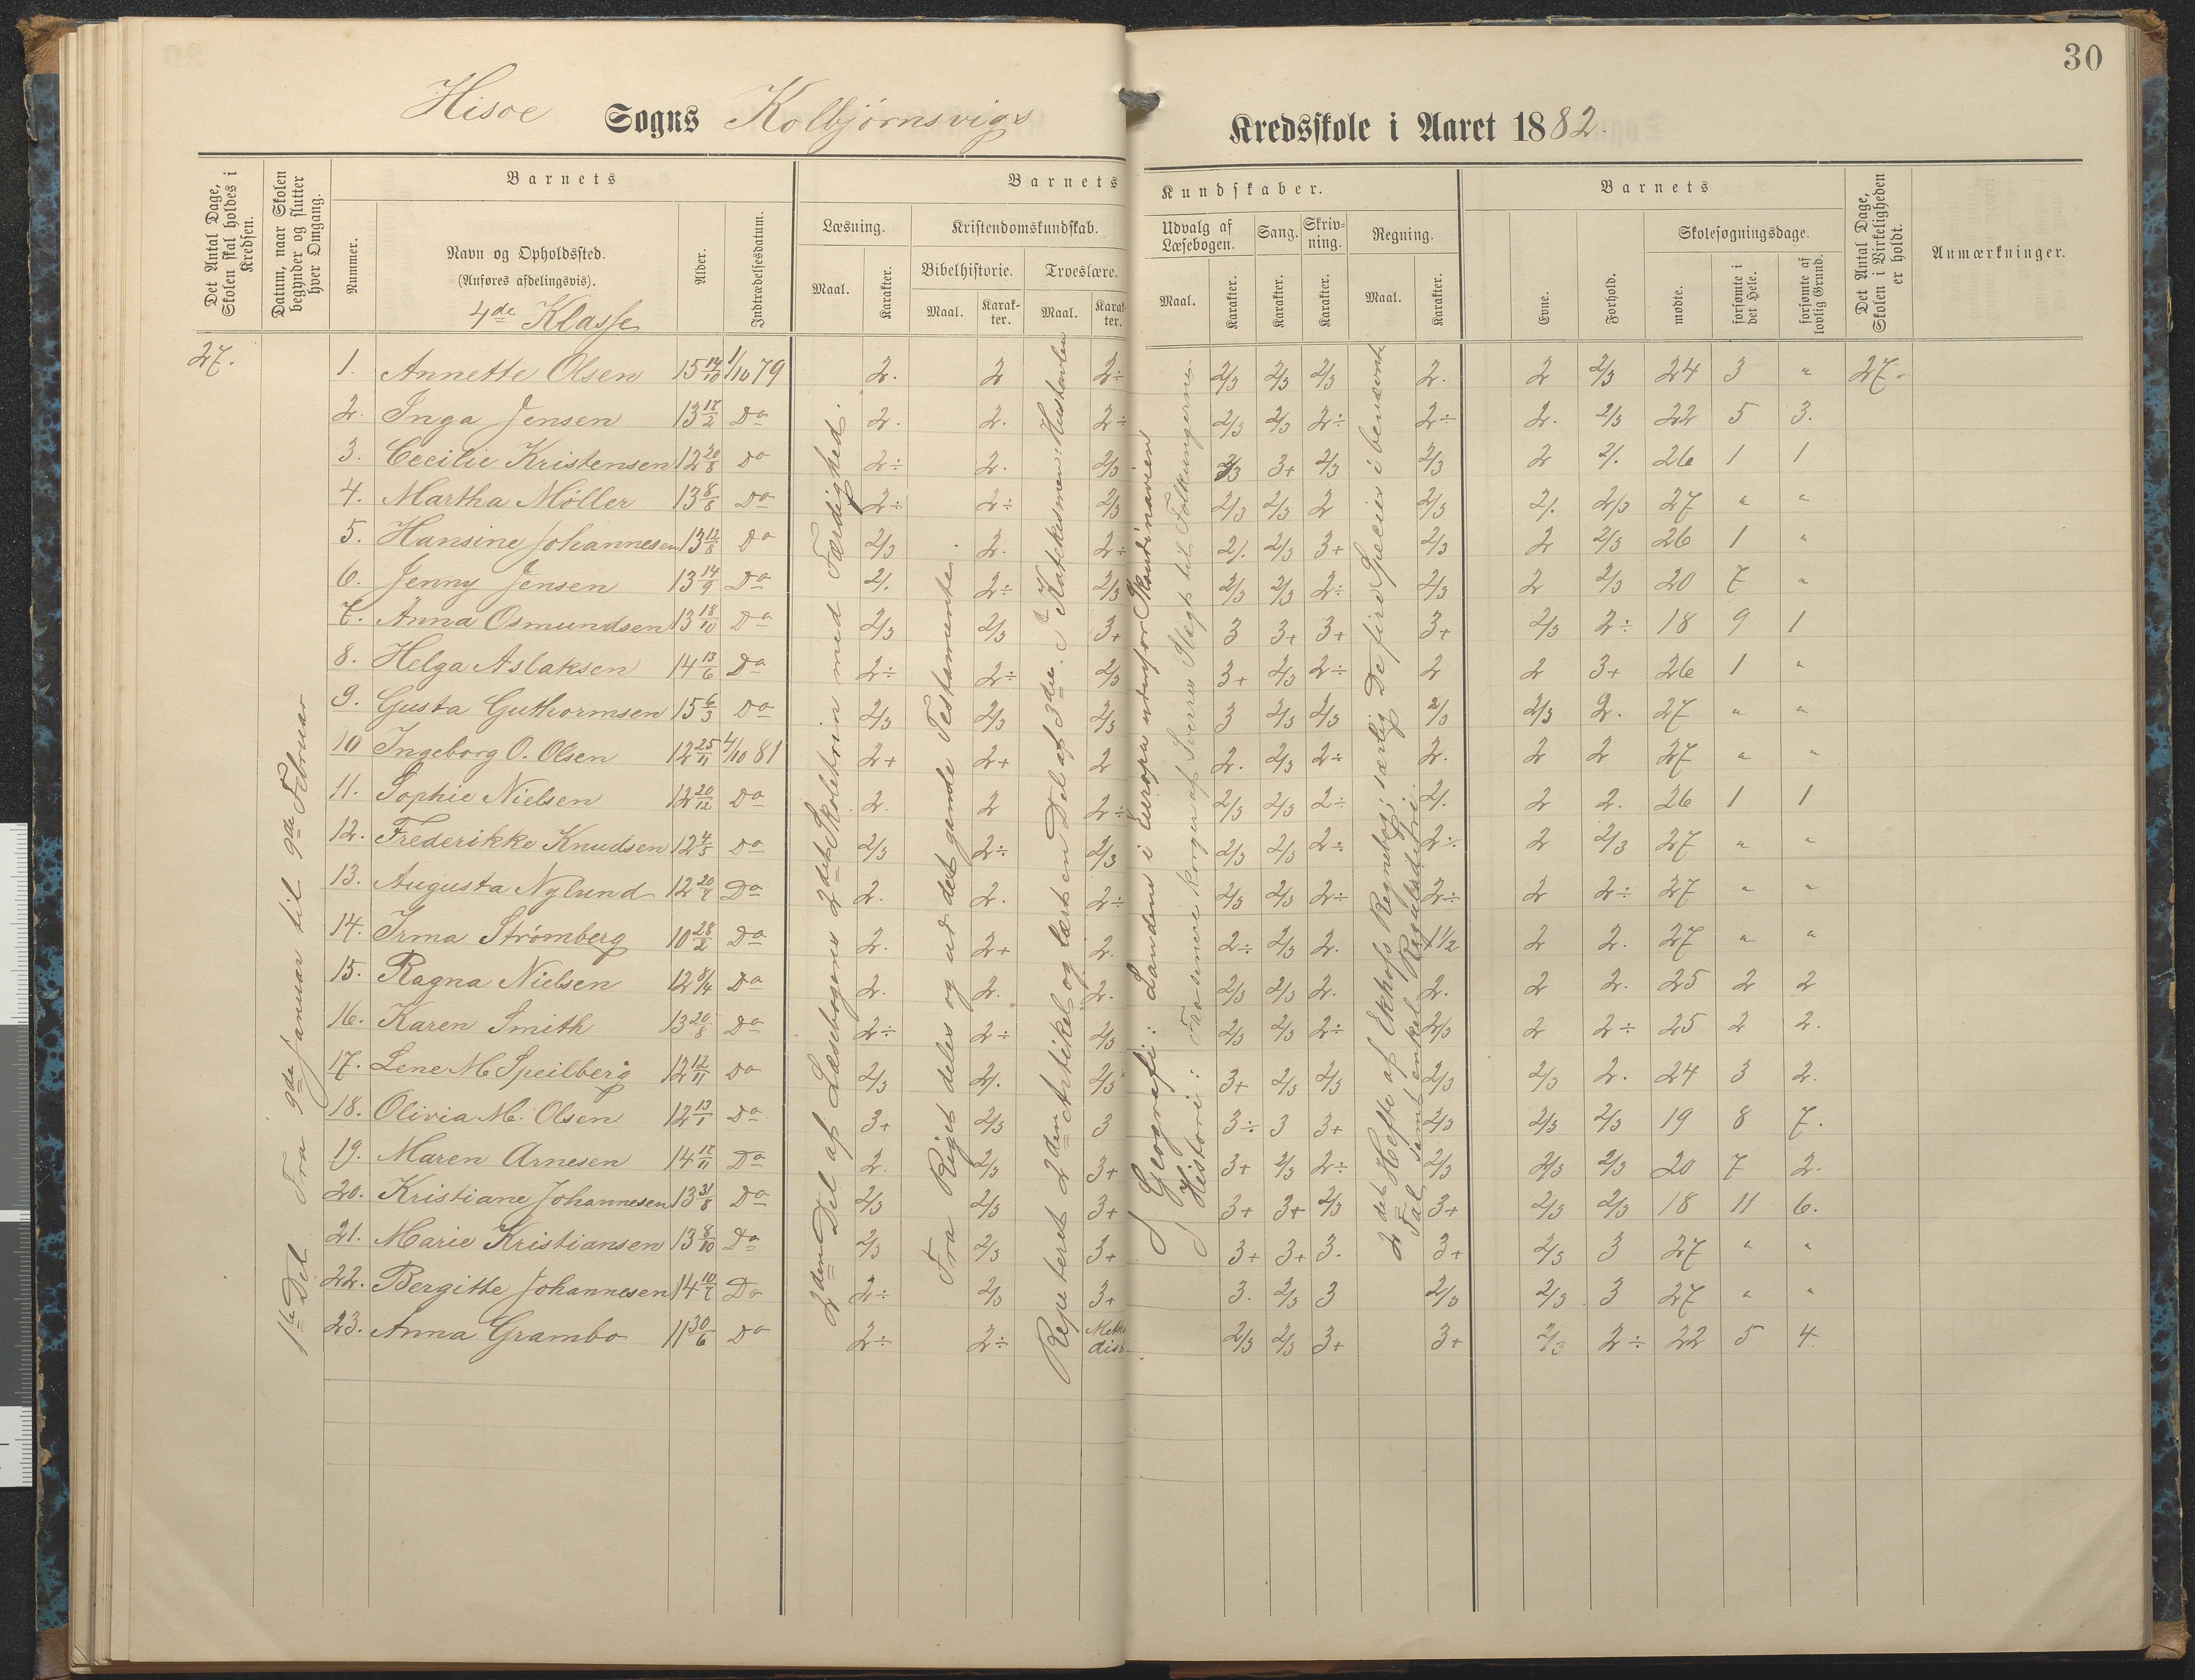 30
Hisøe Sogns Kolbjørnsvigs Kredsskole i Aaret 1882.
Det Antal Dage, Skolen skal holdes i Kredsen.
Datum, naar Skolen begynder og slutter hver Omgang.
Barnets
Nummer.
Navn og Opholdssted.
(Anføres afdelingsvis).
4de Klasse
Alder.
Indtrædelsesdatum.
Barnets Kundskaber.
Læsning.
Maal.
Karakter.
Kristendomskundskab.
Bibelhistorie.
Maal.
Karakter.
Troeslære.
Maal.
Karakter.
Udvalg af Læsebogen.
Maal.
Karakter.
Sang.
Karakter.
Skrivning.
Karakter.
Regning.
Maal.
Karakter.
Barnets
Evne.
Forhold.
Skolesøgningsdage.
mødte.
forsømte i det Hele.
forsømte af lovlig Grund.
Det Antal Dage, Skolen i Virkeligheden er holdt.
Anmærkninger.
1ste Del Fra 9de Januar til 9de Februar
2den Del af Læsebogens 2det Skoletrin med Færdighed.
Fra Riget deles og ud det gamle Testamente
Repeteret 2den Artikel og lært en Del af 3die. I Katekismen: Hustavlen
Geografi: Landene i Europa udenfor Skandinavien
Historie: Fra senere Konger af Sverres Slægt til Folkungerne
2det Hefte af Ekhofs Regnebog; særlig De fire Specier i benævnte
Tal, samt enkel Reguladetri.
27. 1. Annette Olsen 15 14/10 1/10 79 2. 2 2÷ 2/3 2/3 2/3 2. 2 2/3 24 3 " 27.
2. Inga Jensen 13 17/2 Do 2. 2. 2÷ 2/3 2/3 2÷ 2÷ 2. 2/3 22 5 3.
3. Cecilie Kristensen 12 20/8 Do 2÷ 2. 2/3 2/3 3+ 2/3 2/3 2 2/. 26 1 1
4. Martha Møller 13 8/8 Do 2÷ 2÷ 2/3 2/3 2/3 2 2/3 2/. 2/3 27 " "
5. Hansine Johannesen 13 12/8 Do 2/3 2. 2÷ 2/. 2/3 3+ 2/3 2 2/3 26 1 "
6. Jenny Jensen 13 14/9 Do 2/. 2÷ 2/3 2/3 2/3 2÷ 2/3 2 2/3 20 7 "
7. Anna Osmundsen 13 18/10 Do 2/3 2/3 3+ 3 3+ 3+ 3+ 2/3 2÷ 18 9 1
8. Helga Aslaksen 14 13/6 Do 2÷ 2÷ 2/3 3+ 2/3 2÷ 2 2 3+ 26 1 "
9. Gusta Guthormsen 15 6/3 Do 2/3 2/3 2/3 3 2/3 2/3 2/3 2/3 2. 27 " "
10 Ingeborg O. Olsen 12 25/11 4/10 81 2+ 2+ 2 2. 2/3 2÷ 2. 2 2 27 " "
11. Sophie Nielsen 12 20/12 Do 2. 2 2÷ 2/3 2/3 2÷ 2/. 2 2. 26 1 1
12. Frederikke Knudsen 12 4/5 Do 2/3 2÷ 2/3 2/3 2/3 2÷ 2÷ 2 2/3 27 " "
13. Augusta Nylund 12 20/7 Do 2. 2. 2÷ 2/3 2/3 2÷ 2÷ 2 2÷ 27 " "
14. Irma Strømberg 10 28/2 Do 2. 2+ 2. 2÷ 2/3 2. 1 1/2 2 2. 27 " "
15. Ragna Nielsen 12 8/4 Do 2. 2. 2. 2/3 2/3 2. 2. 2 2. 25 2 2
16. Karen Smith 13 20/8 Do 2÷ 2÷ 2/3 2/3 2/3 2÷ 2/3 2 2÷ 25 2 2.
17. Lene M Speilberg 12 12/11 Do 2/3 2/. 2/3 3+ 2/3 2/3 2/3 2/3 2. 24 3 2.
18. Olivia M. Olsen 12 13/1 Do 3+ 2/3 3 3÷ 3 3+ 2/3 2/3 2/3 19 8 7.
19. Maren Arnesen 14 17/11 Do 2. 2/3 3+ 3+ 2/3 2÷ 2/3 2/3 2/3 20 7 2.
20. Kristiane Johannesen 13 31/8 Do 2/3 2/3 3+ 3+ 3+ 2/3 3+ 2/3 2/3 18 11 6.
21. Marie Kristiansen 13 8/10 Do 2/3 2/3 3+ 3+ 3+ 3. 3+ 2/3 3 27 " "
22. Bergitte Johannesen 14 10/7 Do 2÷ 2/3 3+ 3. 2/3 3 2/3 2/3 3 27 " "
23. Anna Grambo 11 30/6 Do 2÷ 2÷ Metho dist 2/3 2/3 3+ 3+ 2/3 2÷ 22 5 4.